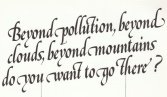 Beyond pollution, beyond
clouds, beyond mountains
do you want to go there ?